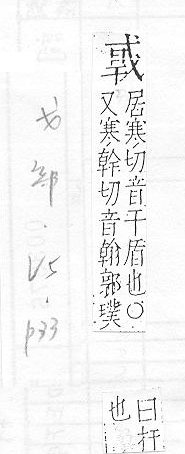 居寒切音干盾也〇
又寒幹切音翰郭璞
曰扞
也
戈部·V5·p33